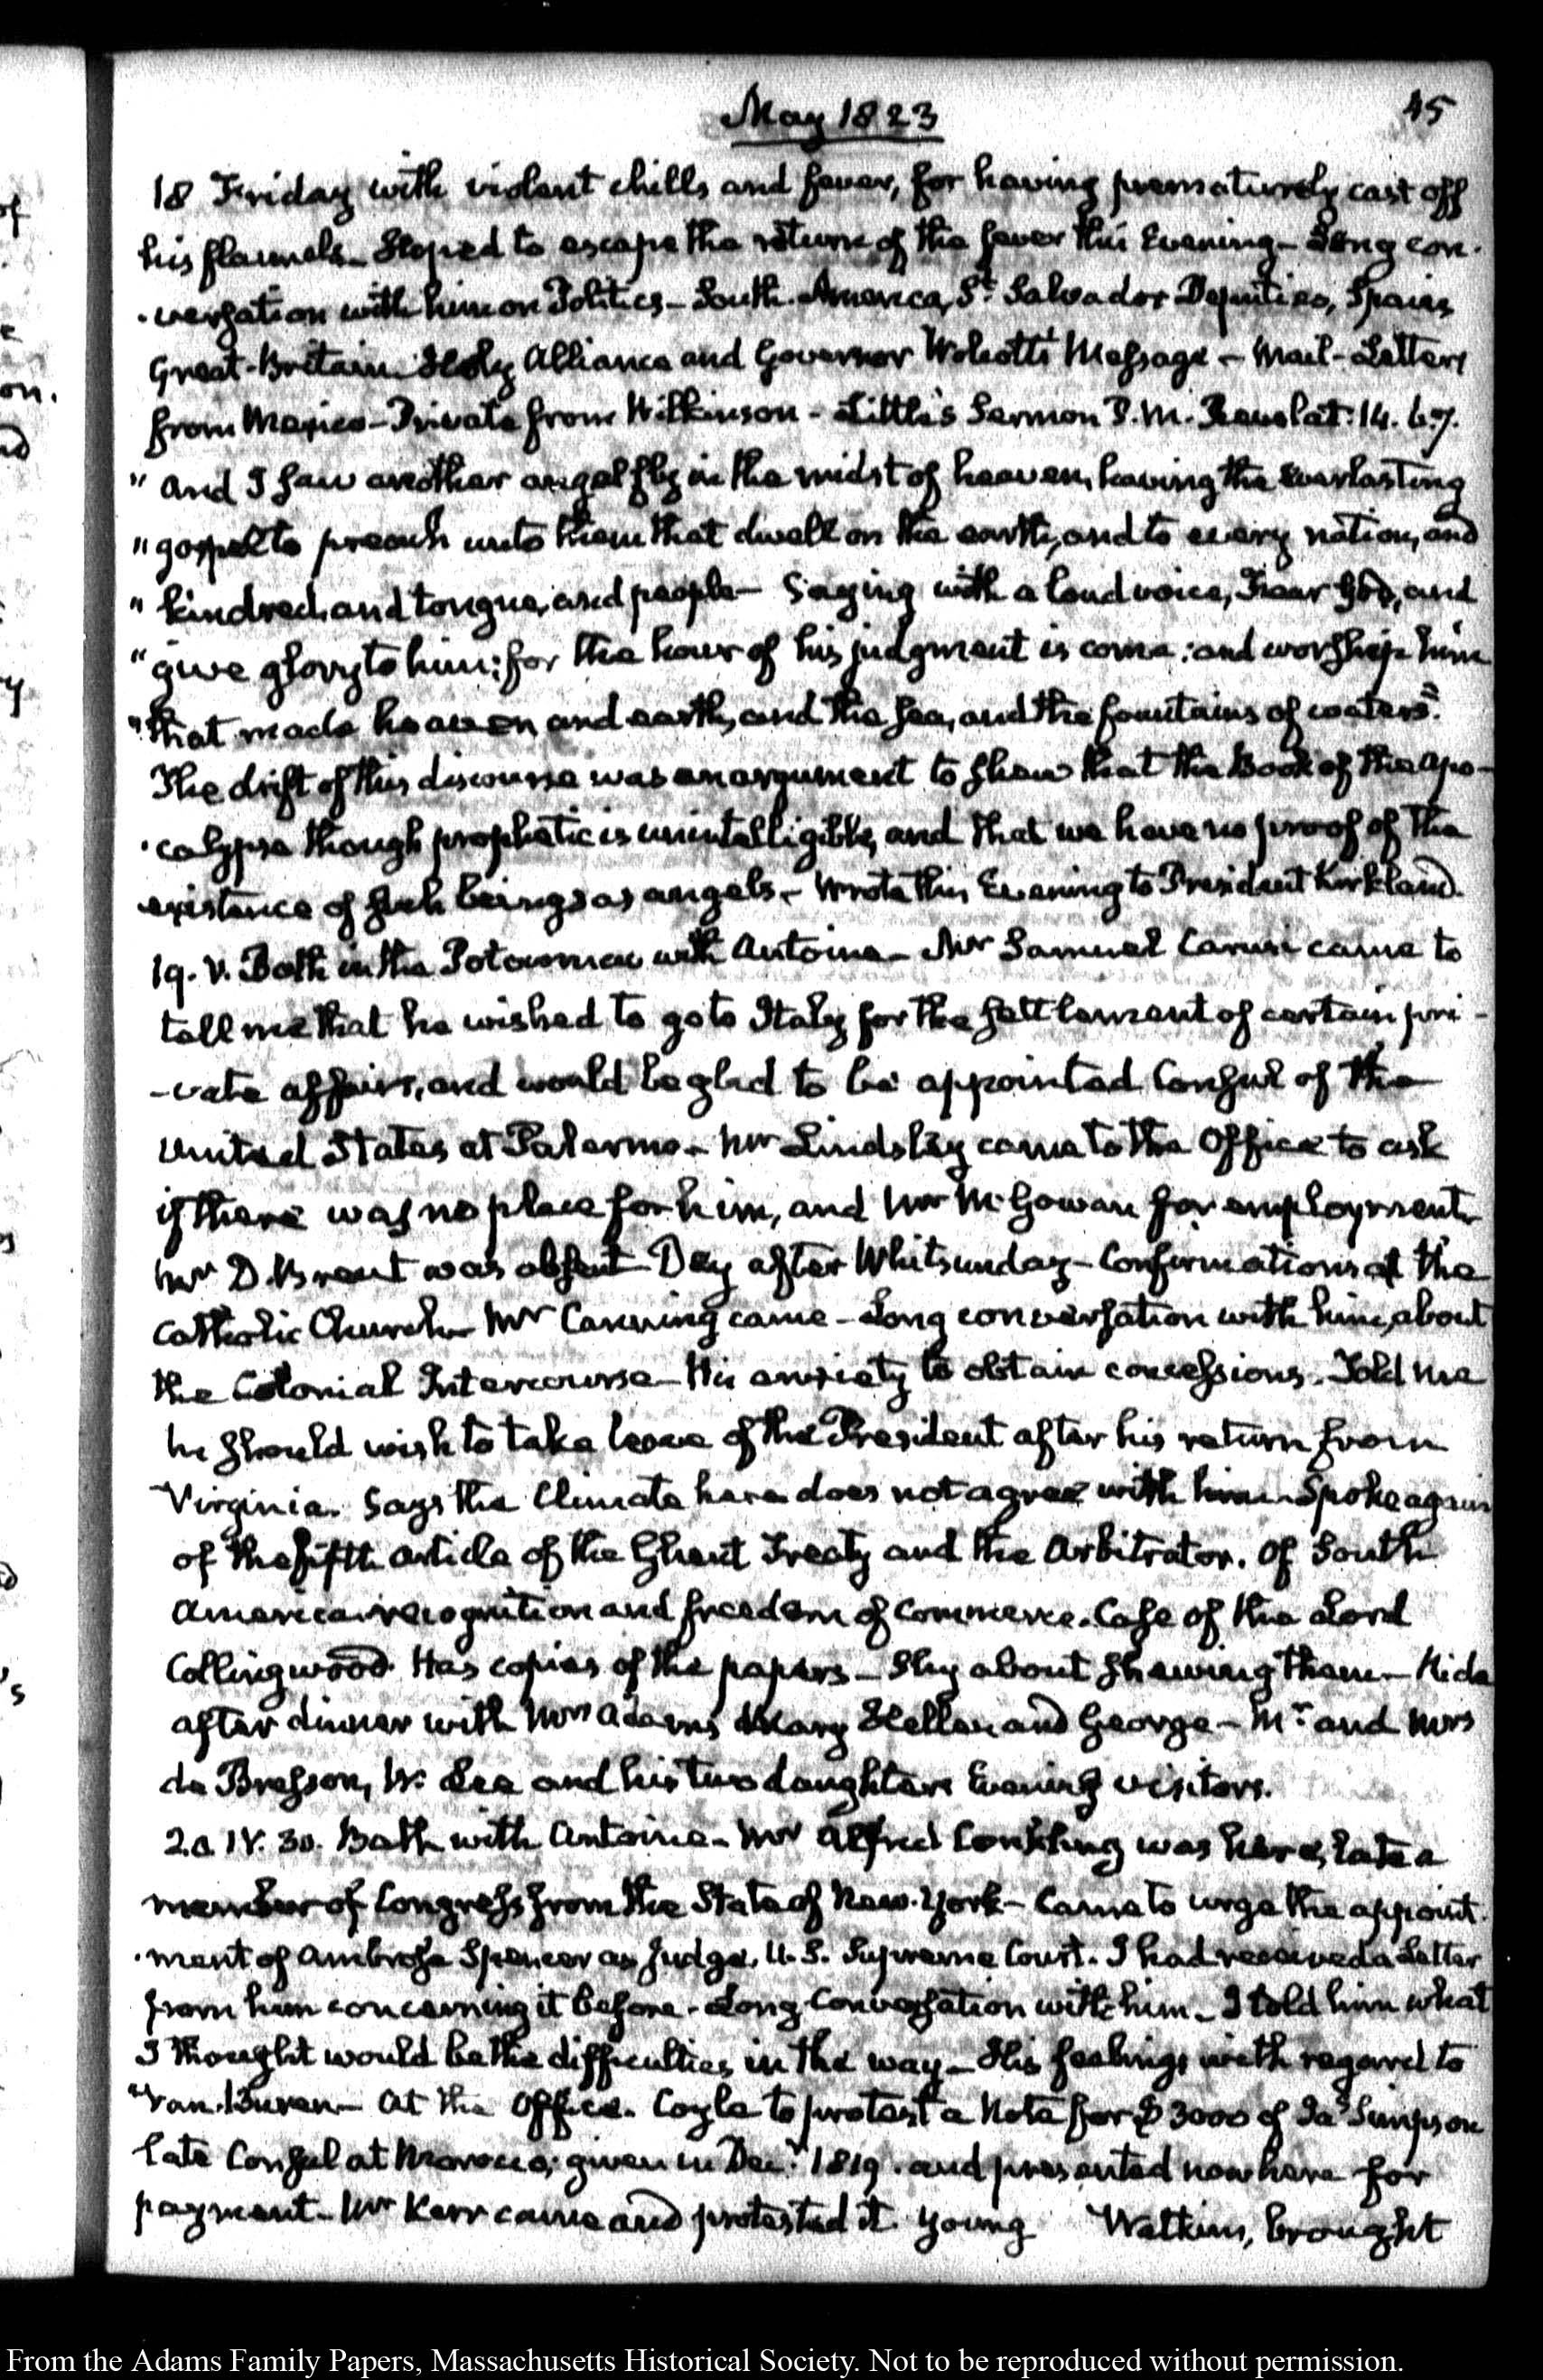 May 1823
45
18 Friday with violent chills and fever, for having prematurely cast off
his flannels— Hoped to escape the return of the fever this Evening— Long con-
-versation with him on Politics— South-America, St. Salvador Deputies, Spain,
Great-Britain Holy Alliance and Governor Wolcott's Message— Mail— Letters
from Mexico— Private from Wilkinson— Little's Sermon P.M. Revelat: 14. 6.7.
" and I saw another angel fly in the midst of heaven, having the everlasting
" gospel to preach unto them that dwell on the earth, and to every nation, and
" kindred, and tongue, and people— Saying with a loud voice, Fear God, and
" give glory to him: for the hour of his judgment is come: and worship him
" that made heaven and earth, and the sea, and the fountains of waters."
The drift of this discourse was an argument to shew that the Book of the Apo-
-calypse though prophetic is unintelligible, and that we have no proof of the
existence of such beings as angels.— Wrote this Evening to President Kirkland.
19. V. Bath in the Potowmac with Antoine— Mr Samuel Carusi came to
tell me that he wished to go to Italy for the settlement of certain pri-
-vate affairs, and would be glad to be appointed Consul of the
United States at Palermo— Mr Lindsley came to the Office to ask
if there was no place for him, and Mr McGowan for employment.
Mr D. Brent was absent— Day after Whitsunday— Confirmations at the
Catholic Church— Mr Canning came— Long conversation with him, about
the Colonial Intercourse— His anxiety to obtain concessions. Told me
he should wish to take leave of the President after his return from
Virginia. Says the Climate here does not agree with him— Spoke again
of the fifth article of the Ghent Treaty and the Arbitrator. Of South
American recognition and freedom of Commerce. Case of the Lord
Collingwood. Has copies of the papers— Shy about shewing them— Ride
after dinner with Mrs Adams, Mary Hellen and George— Mr. and Mrs
de Bresson, W. Lee and his two daughters Evening visitors.
20. IV. 30. Bath with Antoine— Mr Alfred Conkling was here, late a
member of Congress from the State of New-York— Came to urge the appoint-
-ment of Ambrose Spencer as Judge, U.S. Supreme Court. I had received a Letter
from him concerning it before. Long Conversation with him— I told him what
I thought would be the difficulties in the way— His feelings with regard to
Van-Buren— At the Office. Coyle to protest a Note for $3000 of Jas Simpson
late Consul at Morocco, given in Decr. 1819. and presented now here for
payment— Mr Kerr came and protested it. Young Watkins, brought
From the Adams Family Papers, Massachusetts Historical Society. Not to be reproduced without permission.